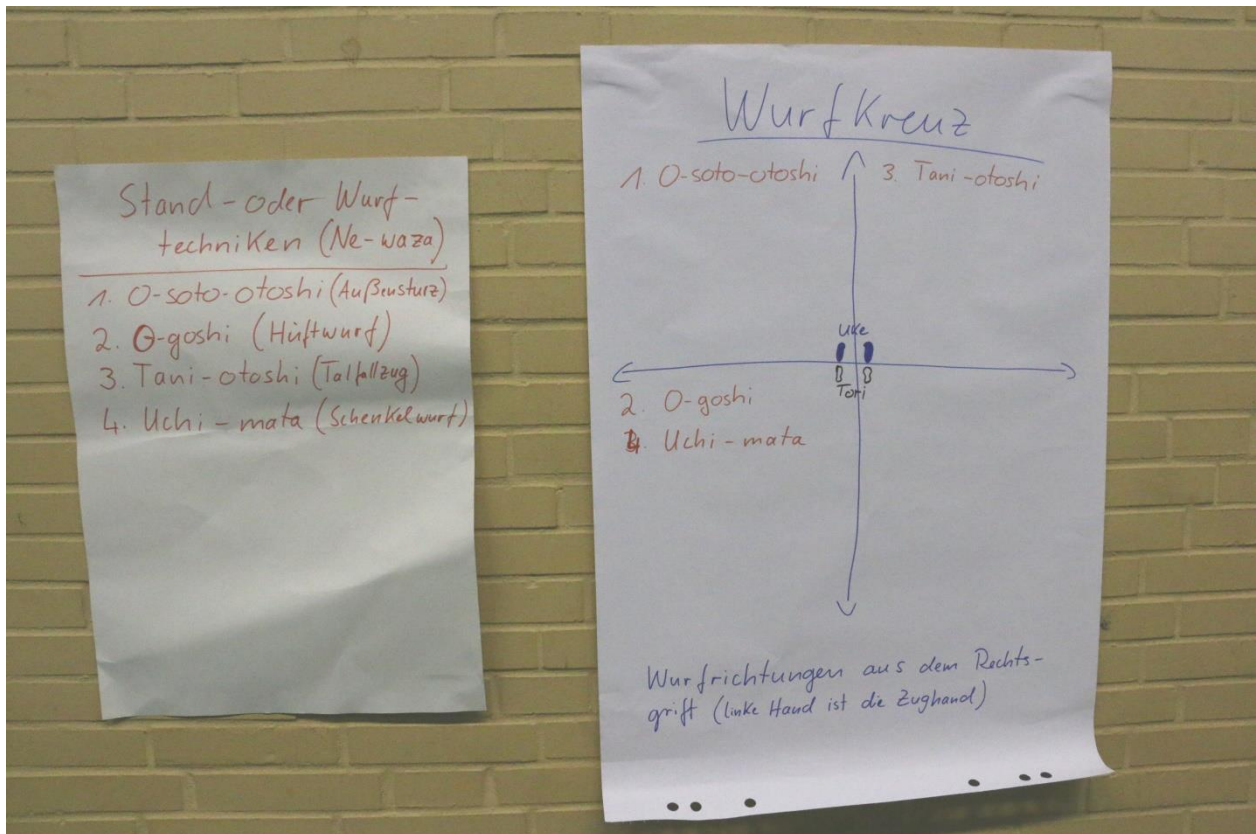 Stand-oder Wurf-
techniken (Ne-waza)
1. O-soto-otoshi (Außensturz)
2. O-goshi (Hüftwurf)
3. Tani-otoshi (Talfallzug)
4. Uchi-mata (Schenkelwurf)
Wurfkreuz
1. O-soto-otoshi
3. Tani-otoshi
Uke
Tori
2. O-goshi
4. Uchi-mata
Wurfrichtungen aus dem Rechts-
griff (linke Hand ist die Zughand)